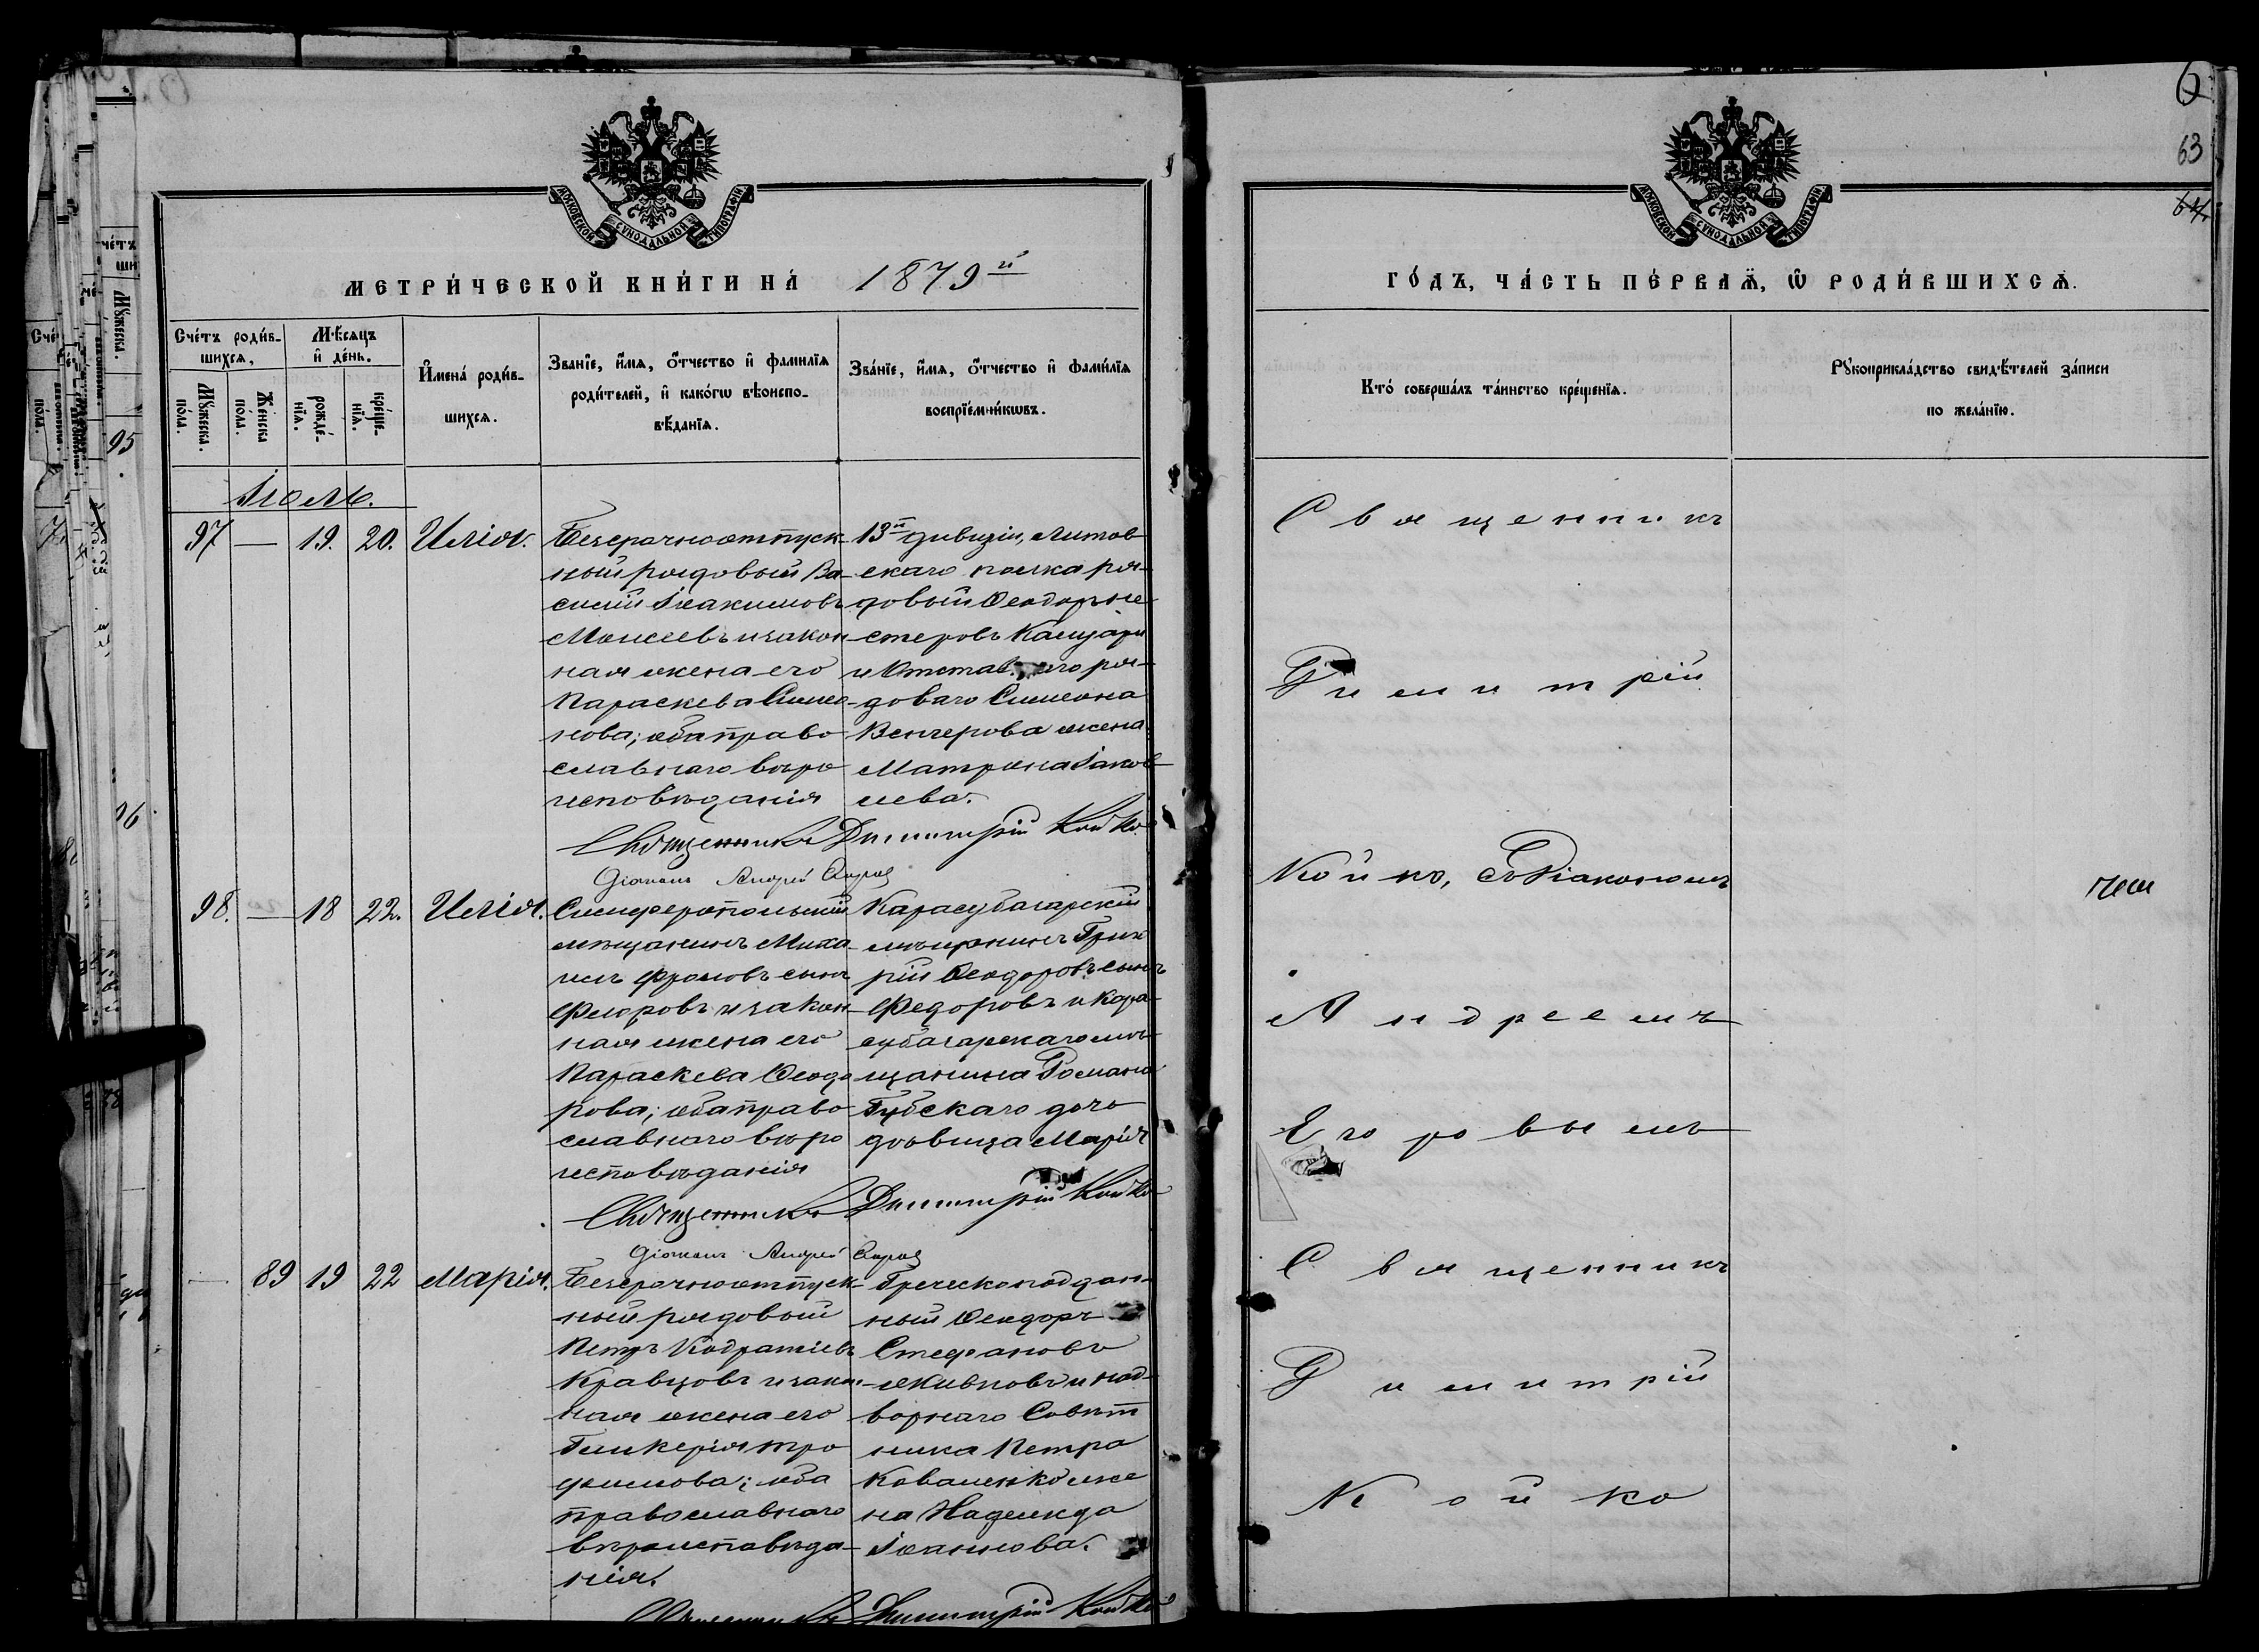 МОСКОВСКОЙ СУНОДАЛЬНОЙ ТИПОГРАФІИ
МЕТРИ́ЧЕСКОЙ КНИ́ГИ НА́ 1879й
Сче́тъ роди́в-
шихся,
Мѣ́сяцъ
и҆ де́нь.
Мꙋ́жеска
по́ла.
Же́нска
по́ла.
рожде́-
нїя.
креще́-
нїя.
И҆мена̀ роди́в-
шихся.
Зва́нїе, и҆́мя, ѻ҆́тчество и҆ фами́лїя
роди́телей, и҆ како́гѡ вѣроиспо-
вѣ́данїя.
Зва́нїе, и҆́мя, ѻ҆́тчество и҆ фами́лїя
воспрїе́мникѡвъ.
Іюль.
97 — 19. 20. Илія.
Безсрочноотпуск-
ный рядовый Ва-
силій Іоакимовъ
Моисеевъ и закон
ная жена его
Параскева Симео
нова; оба право
славнаго вѣро
исповѣданія
13й дивизіи, Литов
скаго полка ря-
довый Ѳеодоръ Не
стеровъ
и ря-
доваго Симеона
Венгерова жена
Матрона Іаков
лева.
Священникъ Димитрій Койко
Діаконъ Андрей
98. — 18 22. Илія.
Симферопольскій
мѣщанинъ Миха
илъ Фроловъ сынъ
Флоровъ и закон
ная жена его
Параскева Ѳеодо
рова; оба право
славнаго вѣро
исповѣданія
Карасубазарскій
мѣщанинъ Григ
рій Ѳеодоровъ сынъ
Федоровъ и Кара-
субазарскаго мѣ-
щанина Романа
Губскаго дочь
дѣвица Марія
Священникъ Димитрій Койко
Діаконъ Андрей
— 89 19 22 Марія.
Безсрочноотпуск-
ный рядовый
Петръ Кодратіевъ
Кравцовъ и закон
ная жена его
Гликерія Тро
фимова; оба
православнаго
вѣроисповѣда-
нія.
Греческоподдан-
ный Ѳеодоръ
Стефановъ
и над-
ворнаго Совѣт
ника Петра
Коваленко же
на Надежда
Іоаннова.
Священникъ Димитрій Койко
63
64.
МОСКОВСКОЙ СУНОДАЛЬНОЙ ТИПОГРАФІИ
ГО́ДЪ, ЧА́СТЬ ПЕ́РВАЯ, Ѡ҆ РОДИ́ВШИХСЯ.
Кто̀ соверша́лъ та́инство креще́нїя.
Рꙋкоприкла́дство свидѣ́телей за́писи
по жела́нїю.
Священникъ
Димитрій
Койко, съ Діакономъ
Андреемъ
Егоровымъ
Священникъ
Димитрій
Койко